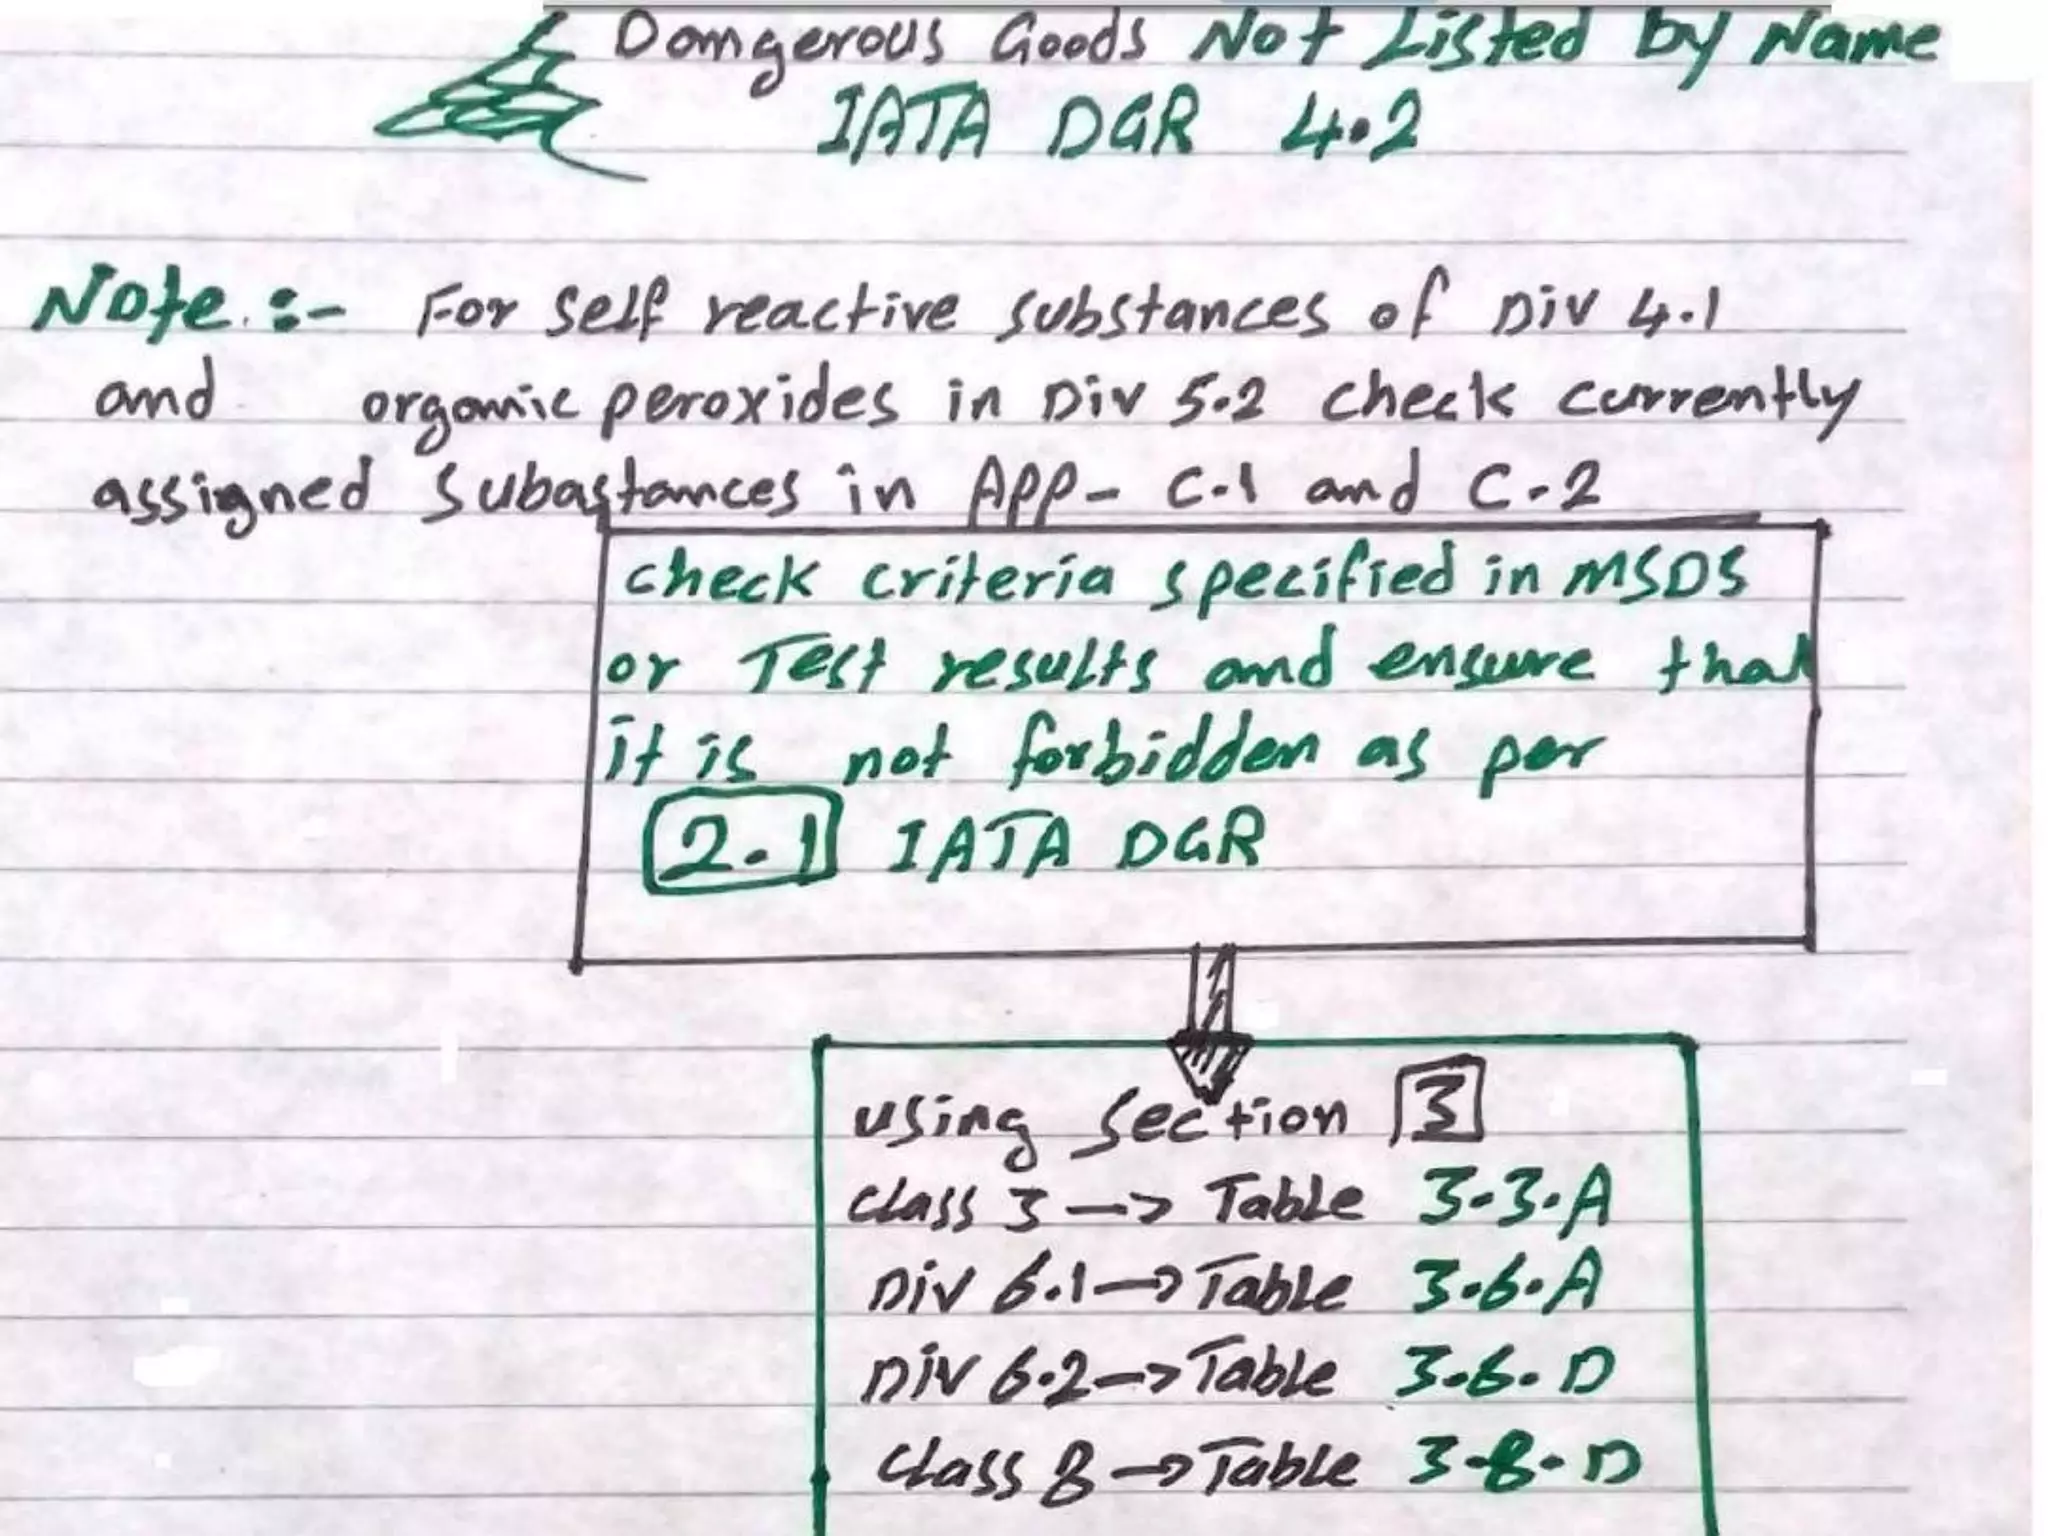 Dangerous Goods Not Listed by Name
IATA DGR 4.2
Note :- For self reactive substances of Div 4.1
and organic peroxides in Div 5.2 check currently
assigned Subastances in App- C.1 and C.2
check criteria specified in MSDS
or Test results and ensure that
it is not forbidden as per
2.1 IATA DGR
using Section 3
class 3 -> Table 3.3.A
Div 6.1 -> Table 3.6.A
Div 6.2 -> Table 3.6.D
class 8 -> Table 3.8.D